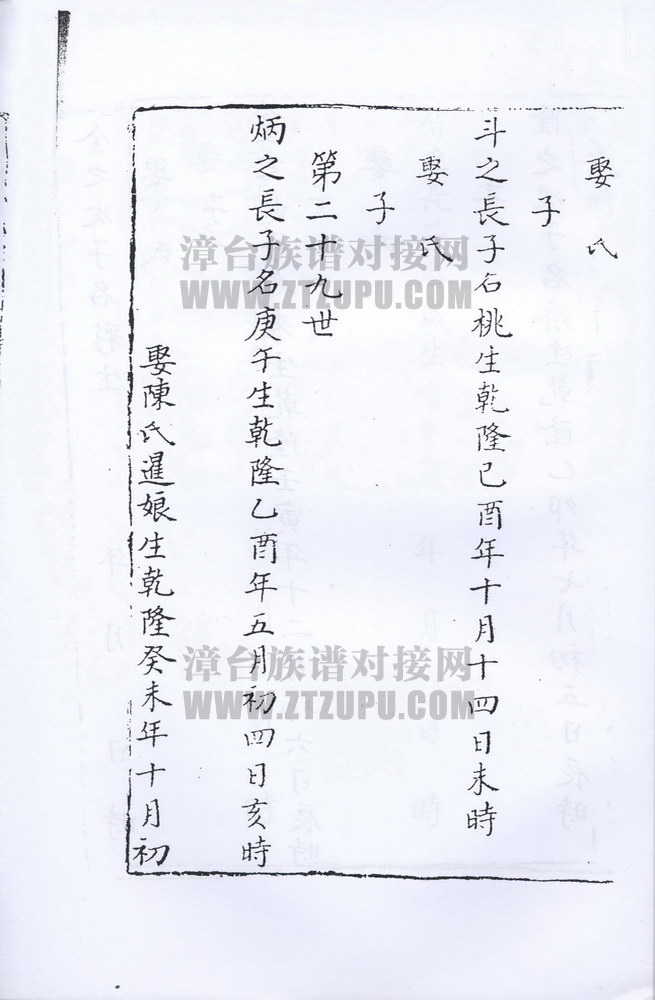 娶氏
子
斗之長子名桃生乾隆己酉年十月十四日未時
娶氏
子
第二十九世
炳之長子名庚午生乾隆乙酉年五月初四日亥時
娶陳氏暹娘生乾隆癸未年十月初
漳台族谱对接网
WWW.ZTZUPU.COM
漳台族谱对接网
WWW.ZTZUPU.COM